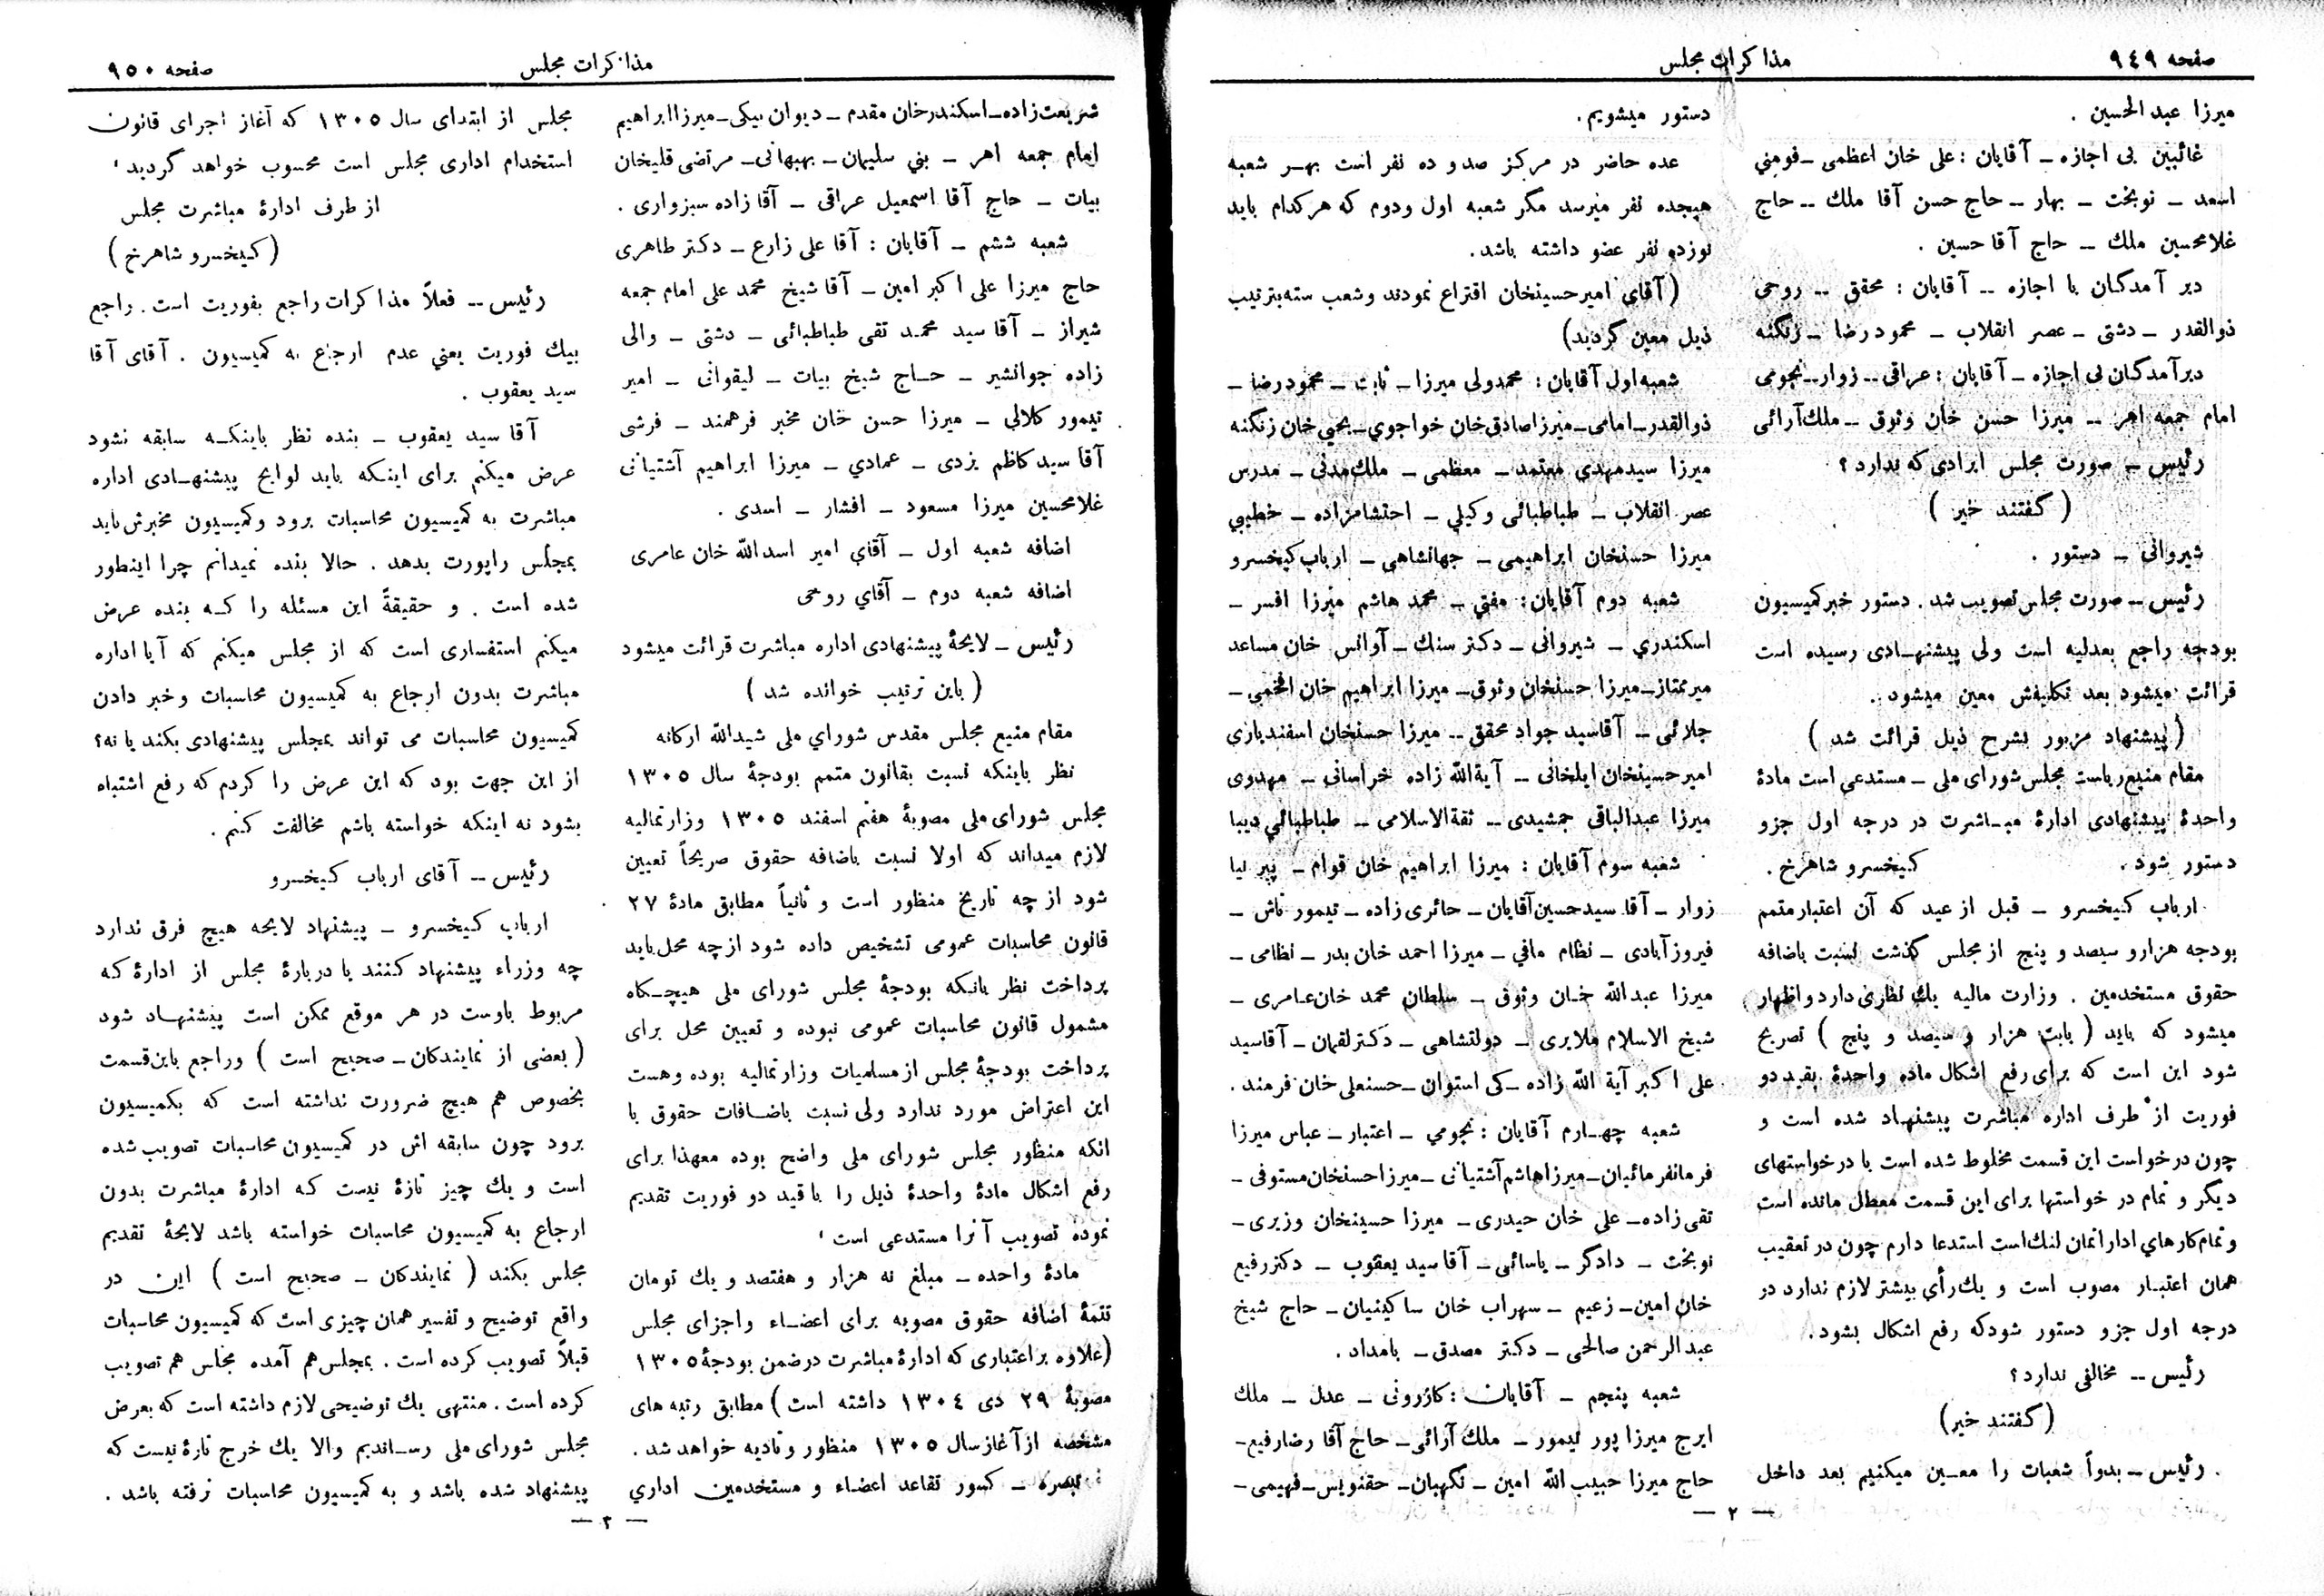 صفحه ٩٤٩
مذاکرات مجلس
میرزا عبدالحسین .
غائبین بی اجازه ـ آقایان : علی خان اعظمی ـ فومنی
اسعد ـ نوبخت ـ بهار ـ حاج حسن آقا ملك ـ حاج
غلامحسین ملك ـ حاج آقا حسین .
دیر آمدگان با اجازه ـ آقایان : محقق ـ روحی
ذوالقدر ـ دشتی ـ عصر انقلاب ـ محمود رضا ـ زنگنه
دیرآمدگان بی اجازه ـ آقایان : عراقی ـ زوار ـ نجومی
امام جمعه اهر ـ میرزا حسن خان وثوق ـ ملك‌آرائی
رئیس ـ صورت مجلس ایرادی که ندارد ؟
( گفتند خیر )
شیروانی ـ دستور .
رئیس ـ صورت مجلس تصویب شد . دستور خبر کمیسیون
بودجه راجع بعدلیه است ولی پیشنهادی رسیده است
قرائت میشود بعد تکلیفش معین میشود .
( پیشنهاد مزبور بشرح ذیل قرائت شد )
مقام منیع ریاست مجلس شورای ملی ـ مستدعی است مادهٔ
واحدهٔ پیشنهادی ادارهٔ مباشرت در درجه اول جزو
دستور شود . کیخسرو شاهرخ .
ارباب کیخسرو ـ قبل از عید که آن اعتبار متمم
بودجه هزار و سیصد و پنج از مجلس گذشت نسبت باضافه
حقوق مستخدمین . وزارت مالیه یك نظری دارد و اظهار
میشود که باید ( بابت هزار و سیصد و پنج ) تصریح
شود این است که برای رفع اشکال ماده واحدهٔ بقید دو
فوریت از طرف اداره مباشرت پیشنهاد شده است و
چون درخواست این قسمت مخلوط شده است با درخواستهای
دیگر و تمام در خواستها برای این قسمت معطل مانده است
و تمام کارهای اداراتمان لنك است استدعا دارم چون در تعقیب
همان اعتبار مصوب است و یك رأی بیشتر لازم ندارد در
درجه اول جزو دستور شود که رفع اشکال بشود .
رئیس ـ مخالفی ندارد ؟
( گفتند خیر )
رئیس ـ بدواً شعبات را معین میکنیم بعد داخل
دستور میشویم .
عده حاضر در مرکز صد و ده نفر است بهر شعبه
هیجده نفر میرسد مگر شعبه اول و دوم که هر کدام باید
نوزده نفر عضو داشته باشد .
( آقای امیر حسینخان اقتراع نمودند و شعب سته بترتیب
ذیل معین گردید )
شعبه اول آقایان : محمدولی میرزا ـ ثابت ـ محمود رضا ـ
ذوالقدر ـ امامی ـ میرزا صادق خان خواجوي ـ یحیی خان زنگنه
میرزا سید مهدی معتمد ـ معظمی ـ ملك مدنی ـ مدرس
عصر انقلاب ـ طباطبائی وکیلی ـ احتشامزاده ـ خطیبی
میرزا حسنخان ابراهیمی ـ جهانشاهی ـ ارباب کیخسرو
شعبه دوم آقایان : مفتی ـ محمد هاشم میرزا افسر ـ
اسکندري ـ شیروانی ـ دکتر سنك ـ آوانس خان مساعد
میرممتاز ـ میرزا حسنخان وثوق ـ میرزا ابراهیم خان افخمی ـ
جلائی ـ آقاسید جواد محقق ـ میرزا حسنخان اسفندیاری
امیرحسینخان ایلخانی ـ آیةالله زاده خراسانی ـ مهدوی
میرزا عبدالباقی جمشیدی ـ ثقةالاسلامی ـ طباطبائی دیبا
شعبه سوم آقایان : میرزا ابراهیم خان قوام ـ پیر نیا
زوار ـ آقا سیدحسین آقایان ـ حائری زاده ـ تیمور تاش ـ
فیروزآبادی ـ نظام مافي ـ میرزا احمد خان بدر ـ نظامی ـ
میرزا عبدالله خان وثوق ـ سلطان محمد خان عامری ـ
شیخ الاسلام ملایری ـ دولتشاهی ـ دکتر لقمان ـ آقاسید
علی اکبر آیة الله زاده ـ کی استوان ـ حسنعلی خان فرمند .
شعبه چهارم آقایان : نجومي ـ اعتبار ـ عباس میرزا
فرمانفرمائیان ـ میرزا هاشم آشتیانی ـ میرزا حسنخان مستوفی ـ
تقی زاده ـ علی خان حیدری ـ میرزا حسینخان وزیری ـ
نوبخت ـ دادگر ـ یاسائی ـ آقاسید یعقوب ـ دکتر رفیع
خان امین ـ زعیم ـ سهراب خان ساکینیان ـ حاج شیخ
عبدالرحمن صالحی ـ دکتر مصدق ـ بامداد .
شعبه پنجم ـ آقایان : کازرونی ـ عدل ـ ملك
ایرج میرزا پور تیمور ـ ملك آرائی ـ حاج آقا رضا رفیع ـ
حاج میرزا حبیب الله امین ـ نگهبان ـ حقنویس ـ فهیمی ـ
— ٢ —
مذاکرات مجلس
صفحه ٩٥٠
شریعت زاده ـ اسکندر خان مقدم ـ دیوان بیگی ـ میرزا ابراهیم
امام جمعه اهر ـ بني سلیمان ـ بهبهانی ـ مرتضی قلیخان
بیات ـ حاج آقا اسمعیل عراقی ـ آقا زاده سبزواری .
شعبه ششم ـ آقایان : آقا علی زارع ـ دکتر طاهری
حاج میرزا علی اکبر امین ـ آقا شیخ محمد علی امام جمعه
شیراز ـ آقا سید محمد تقی طباطبائی ـ دشتی ـ والی
زاده جوانشیر ـ حاج شیخ بیات ـ لیقوانی ـ امیر
تیمور کلالی ـ میرزا حسن خان مخبر فرهمند ـ فرشی
آقا سید کاظم یزدی ـ عمادي ـ میرزا ابراهیم آشتیانی
غلامحسین میرزا مسعود ـ افشار ـ اسدی .
اضافه شعبه اول ـ آقاي امیر اسدالله خان عامری
اضافه شعبه دوم ـ آقاي روحی
رئیس ـ لایحهٔ پیشنهادی اداره مباشرت قرائت میشود
( باین ترتیب خوانده شد )
مقام منیع مجلس مقدس شوراي ملی شیدالله ارکانه
نظر باینکه نسبت بقانون متمم بودجهٔ سال ١٣٠٥
مجلس شورای ملی مصوبهٔ هفتم اسفند ١٣٠٥ وزارتمالیه
لازم میداند که اولا نسبت باضافه حقوق صریحاً تعیین
شود از چه تاریخ منظور است و ثانیاً مطابق مادهٔ ٢٧
قانون محاسبات عمومی تشخیص داده شود از چه محل باید
پرداخت نظر بانکه بودجهٔ مجلس شورای ملی هیچگاه
مشمول قانون محاسبات عمومی نبوده و تعیین محل برای
پرداخت بودجهٔ مجلس از مسلمیات وزارتمالیه بوده و هست
این اعتراض مورد ندارد ولی نسبت باضافات حقوق با
انکه منظور مجلس شورای ملی واضح بوده معهذا برای
رفع اشکال مادهٔ واحدهٔ ذیل را با قید دو فوریت تقدیم
نموده تصویب آنرا مستدعی است ٬
مادهٔ واحده ـ مبلغ نه هزار و هفتصد و یك تومان
تتمهٔ اضافه حقوق مصوبه برای اعضاء و اجزای مجلس
(علاوه بر اعتباری که ادارهٔ مباشرت در ضمن بودجهٔ ١٣٠٥
مصوبهٔ ٢٩ دی ١٣٠٤ داشته است) مطابق رتبه های
مشخصه از آغاز سال ١٣٠٥ منظور و تادیه خواهد شد .
تبصره ـ کسور تقاعد اعضاء و مستخدمین اداري
مجلس از ابتدای سال ١٣٠٥ که آغاز اجرای قانون
استخدام اداری مجلس است محسوب خواهد گردید ٬
از طرف ادارهٔ مباشرت مجلس
( کیخسرو شاهرخ )
رئیس ـ فعلاً مذاکرات راجع بفوریت است . راجع
بیك فوریت یعني عدم ارجاع به کمیسیون . آقای آقا
سید یعقوب .
آقا سید یعقوب ـ بنده نظر باینکه سابقه نشود
عرض میکنم برای اینکه باید لوایح پیشنهادی اداره
مباشرت به کمیسیون محاسبات برود و کمیسیون مخبرش باید
بمجلس راپورت بدهد . حالا بنده نمیدانم چرا اینطور
شده است . و حقیقةً این مسئله را که بنده عرض
میکنم استفساری است که از مجلس میکنم که آیا اداره
مباشرت بدون ارجاع به کمیسیون محاسبات و خبر دادن
کمیسیون محاسبات می تواند بمجلس پیشنهادی بکند یا نه؟
از این جهت بود که این عرض را کردم که رفع اشتباه
بشود نه اینکه خواسته باشم مخالفت کنم .
رئیس ـ آقای ارباب کیخسرو
ارباب کیخسرو ـ پیشنهاد لایحه هیچ فرق ندارد
چه وزراء پیشنهاد کنند یا دربارهٔ مجلس از ادارهٔ که
مربوط باوست در هر موقع ممکن است پیشنهاد شود
( بعضی از نمایندگان ـ صحیح است ) و راجع باین قسمت
بخصوص هم هیچ ضرورت نداشته است که بکمیسیون
برود چون سابقه اش در کمیسیون محاسبات تصویب شده
است و یك چیز تازهٔ نیست که ادارهٔ مباشرت بدون
ارجاع به کمیسیون محاسبات خواسته باشد لایحهٔ تقدیم
مجلس بکند ( نمایندگان ـ صحیح است ) این در
واقع توضیح و تفسیر همان چیزی است که کمیسیون محاسبات
قبلاً تصویب کرده است . بمجلس هم آمده مجلس هم تصویب
کرده است . منتهی یك توضیحی لازم داشته است که بعرض
مجلس شورای ملی رساندیم والا یك خرج تازهٔ نیست که
پیشنهاد شده باشد و به کمیسیون محاسبات نرفته باشد .
— ٣ —